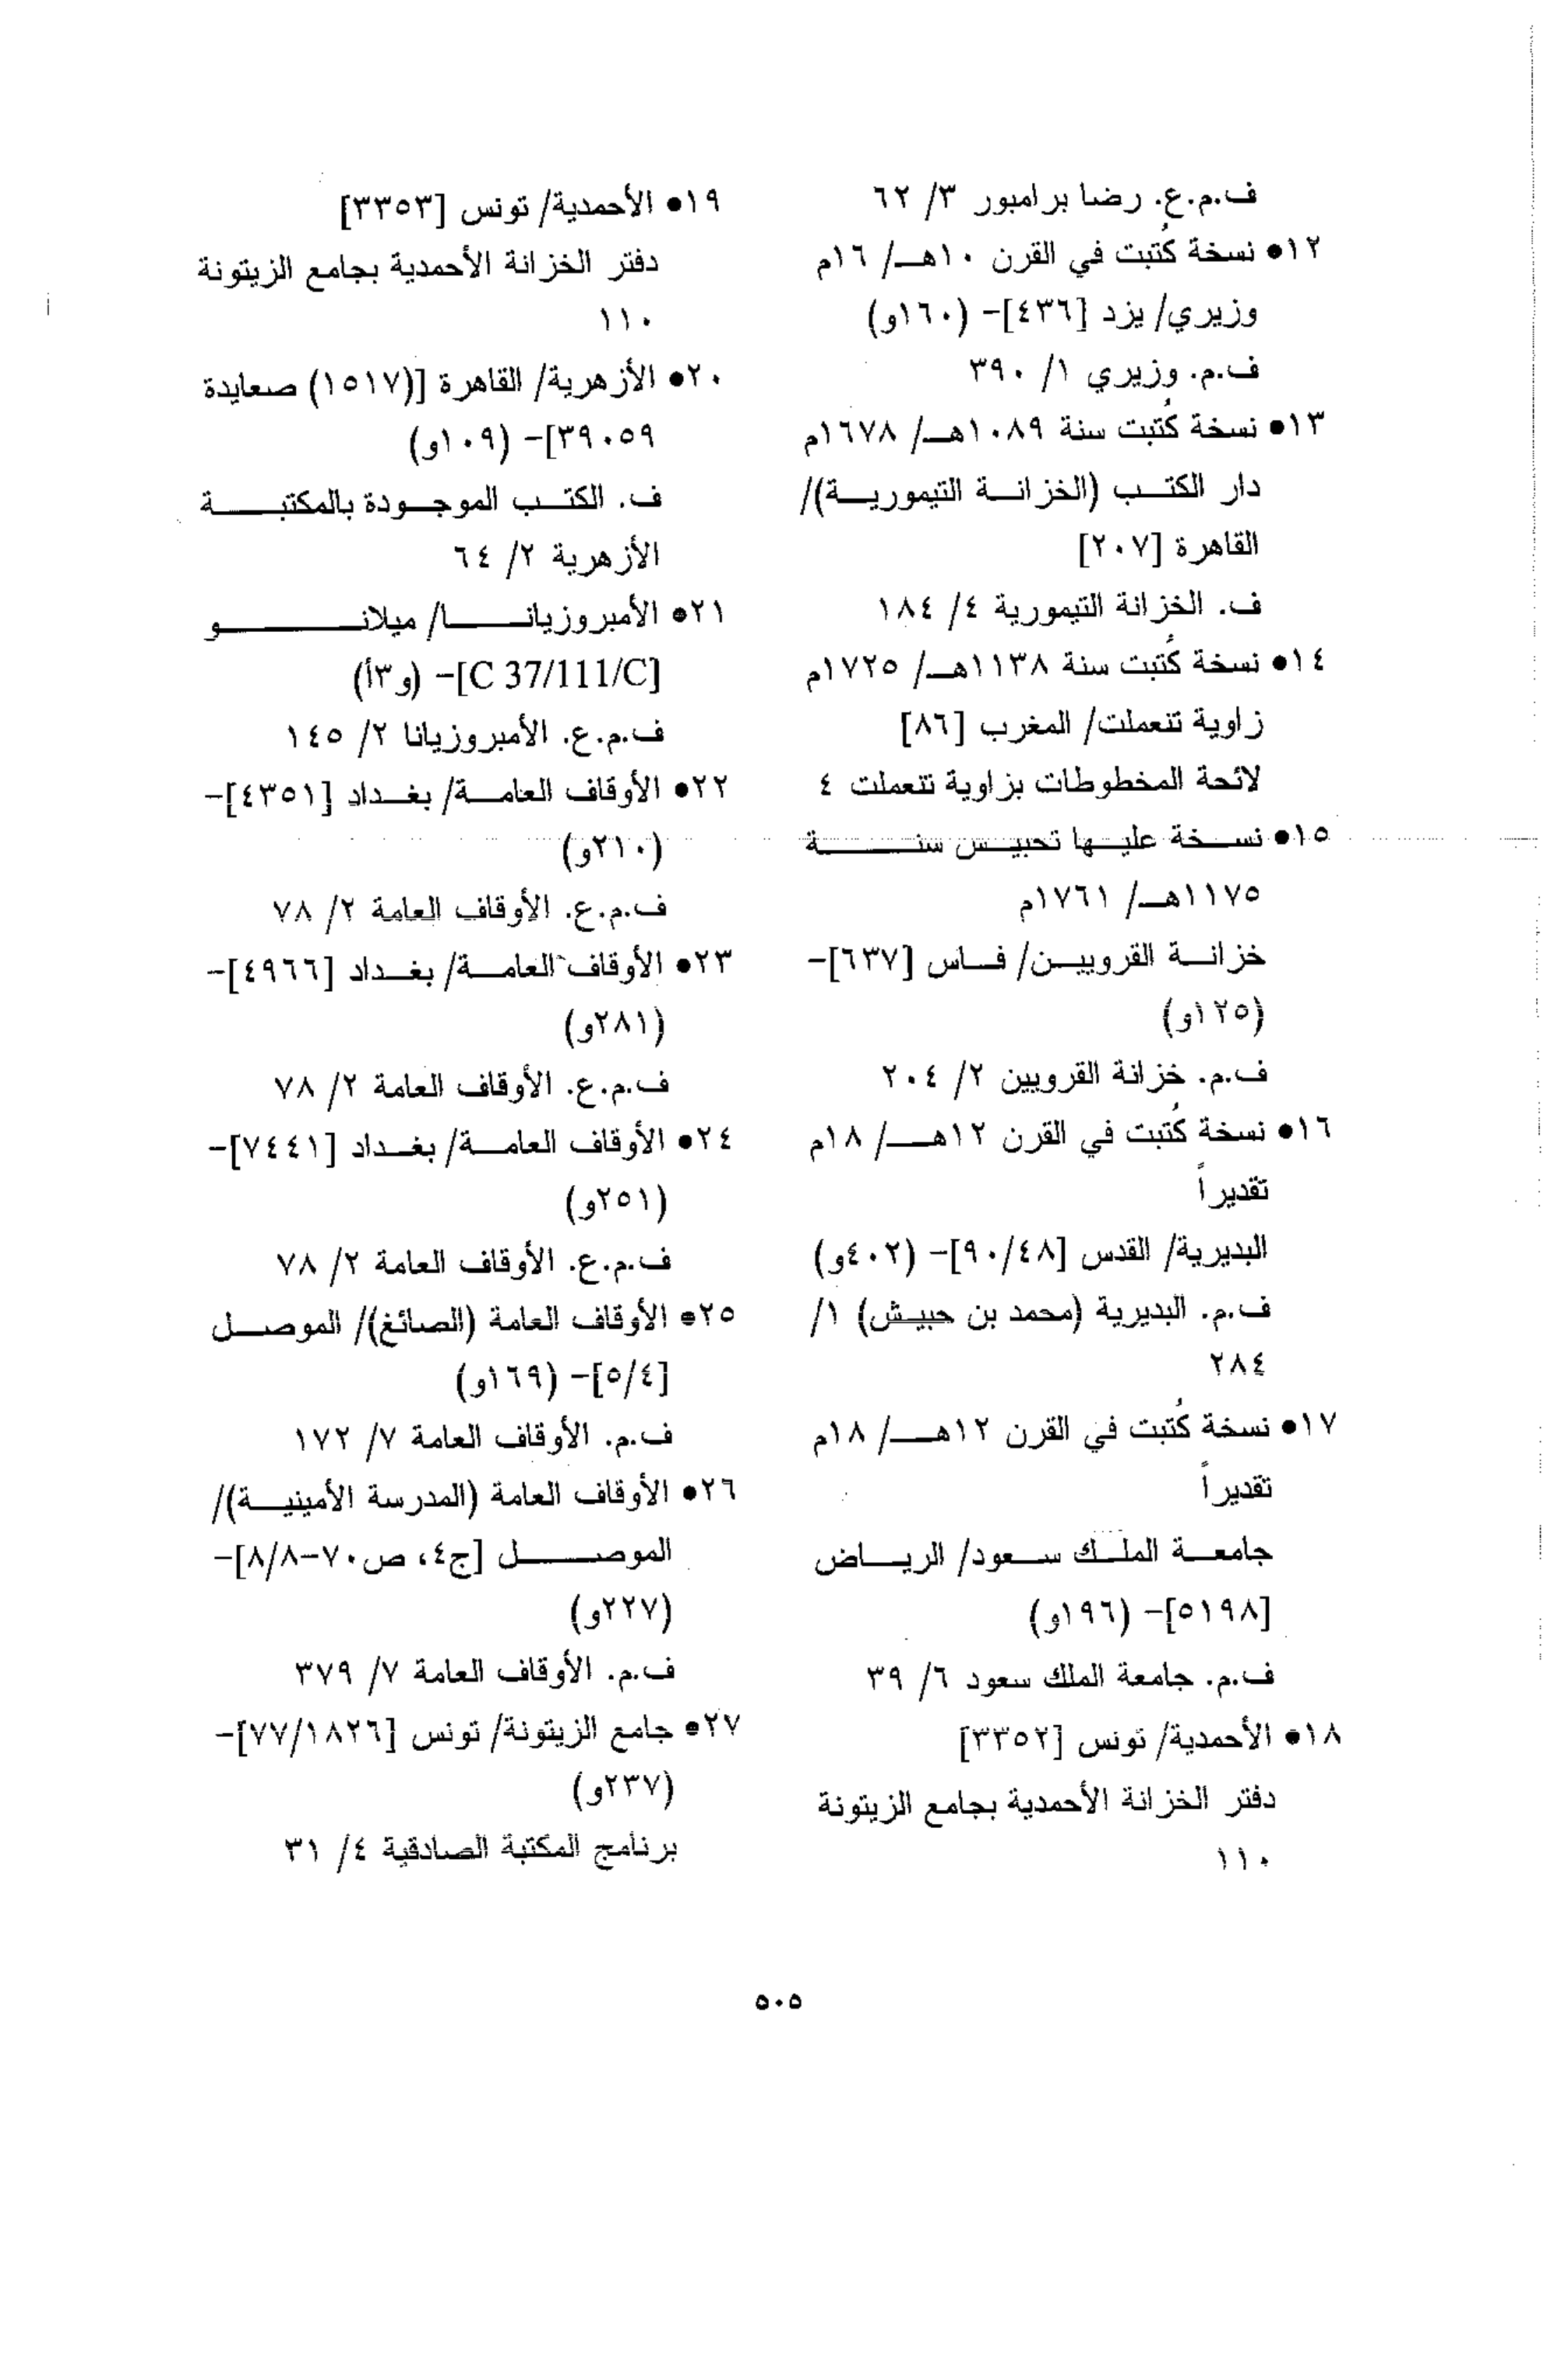 ف.م.ع. رضا برامبور ٣/ ٦٢
١٢• نسخة كُتبت في القرن ١٠هـ/ ١٦م
وزيري/ يزد [٤٣٦]- (١٦٠و)
ف.م. وزيري ١/ ٣٩٠
١٣• نسخة كُتبت سنة ١٠٨٩هـ/ ١٦٧٨م
دار الكتب (الخزانة التيمورية)/
القاهرة [٢٠٧]
ف. الخزانة التيمورية ٤/ ١٨٤
١٤• نسخة كُتبت سنة ١١٣٨هـ/ ١٧٢٥م
زاوية تنعملت/ المغرب [٨٦]
لائحة المخطوطات بزاوية تنعملت ٤
١٥• نسخة عليها تحبيس سنة
١١٧٥هـ/ ١٧٦١م
خزانة القرويين/ فاس [٦٣٧]-
(١٢٥و)
ف.م. خزانة القرويين ٢/ ٢٠٤
١٦• نسخة كُتبت في القرن ١٢هـ/ ١٨م
تقديراً
البديرية/ القدس [٩٠/٤٨]- (٤٠٢و)
ف.م. البديرية (محمد بن حبيش) ١/
٢٨٤
١٧• نسخة كُتبت في القرن ١٢هـ/ ١٨م
تقديراً
جامعة الملك سعود/ الرياض
[٥١٩٨]- (١٩٦و)
ف.م. جامعة الملك سعود ٦/ ٣٩
١٨• الأحمدية/ تونس [٣٣٥٢]
دفتر الخزانة الأحمدية بجامع الزيتونة
١١٠
١٩• الأحمدية/ تونس [٣٣٥٣]
دفتر الخزانة الأحمدية بجامع الزيتونة
١١٠
٢٠• الأزهرية/ القاهرة [(١٥١٧) صعايدة
٣٩٠٥٩]- (١٠٩و)
ف. الكتب الموجودة بالمكتبة
الأزهرية ٢/ ٦٤
٢١• الأمبروزيانا/ ميلانو
[C 37/111/C]- (و٣أ)
ف.م.ع. الأمبروزيانا ٢/ ١٤٥
٢٢• الأوقاف العامة/ بغداد [٤٣٥١]-
(٢١٠و)
ف.م.ع. الأوقاف العامة ٢/ ٧٨
٢٣• الأوقاف العامة/ بغداد [٤٩٦٦]-
(٢٨١و)
ف.م.ع. الأوقاف العامة ٢/ ٧٨
٢٤• الأوقاف العامة/ بغداد [٧٤٤١]-
(٢٥١و)
ف.م.ع. الأوقاف العامة ٢/ ٧٨
٢٥• الأوقاف العامة (الصائغ)/ الموصل
[٥/٤]- (١٦٩و)
ف.م. الأوقاف العامة ٧/ ١٧٢
٢٦• الأوقاف العامة (المدرسة الأمينية)/
الموصل [ج٤، ص٧٠-٨/٨]-
(٢٢٧و)
ف.م. الأوقاف العامة ٧/ ٣٧٩
٢٧• جامع الزيتونة/ تونس [٧٧/١٨٢٦]-
(٢٣٧و)
برنامج المكتبة الصادقية ٤/ ٣١
٥٠٥